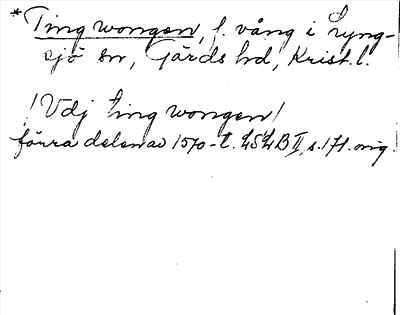 *Ting wongen, f. vång i Lyng-
sjö sn, Gärds hd, Krist. l.
/Vdj ting wongen/
förra delen av 1570-t. LSLB II, s. 171. orig